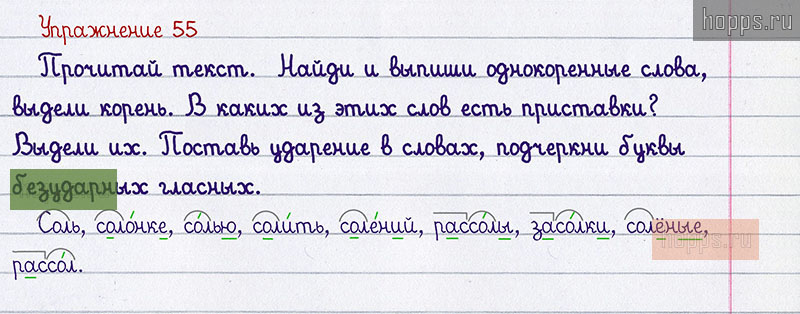 hopps.ru
Упражнение 55
Прочитай текст. Найди и выпиши однокоренные слова,
выдели корень. В каких из этих слов есть приставки?
Выдели их. Поставь ударение в словах, подчеркни буквы
безударных гласных.
Соль, соло́нке, со́лью, соли́ть, соле́ний, рассо́лы, засо́лки, солёные,
hopps.ru
рассо́л.